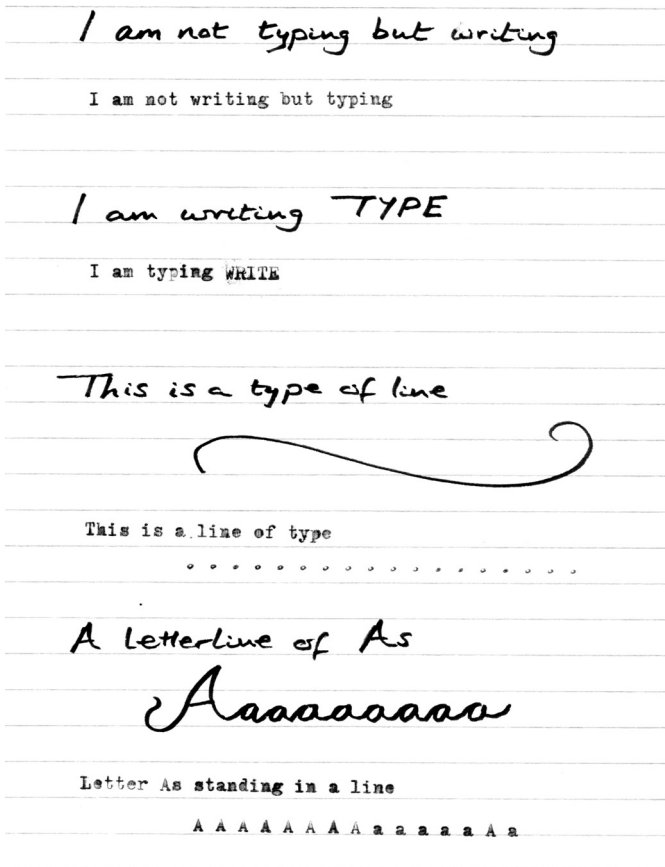 I am not typing but writing
I am not writing but typing
I am writing TYPE
I am typing WRITE
This is a type of line
This is a line of type
. . . . . . . . . . . . . . . . . .
A letterline of As
Aaaaaaaaa
Letter As standing in a line
A A A A A A A A a a a a a A a